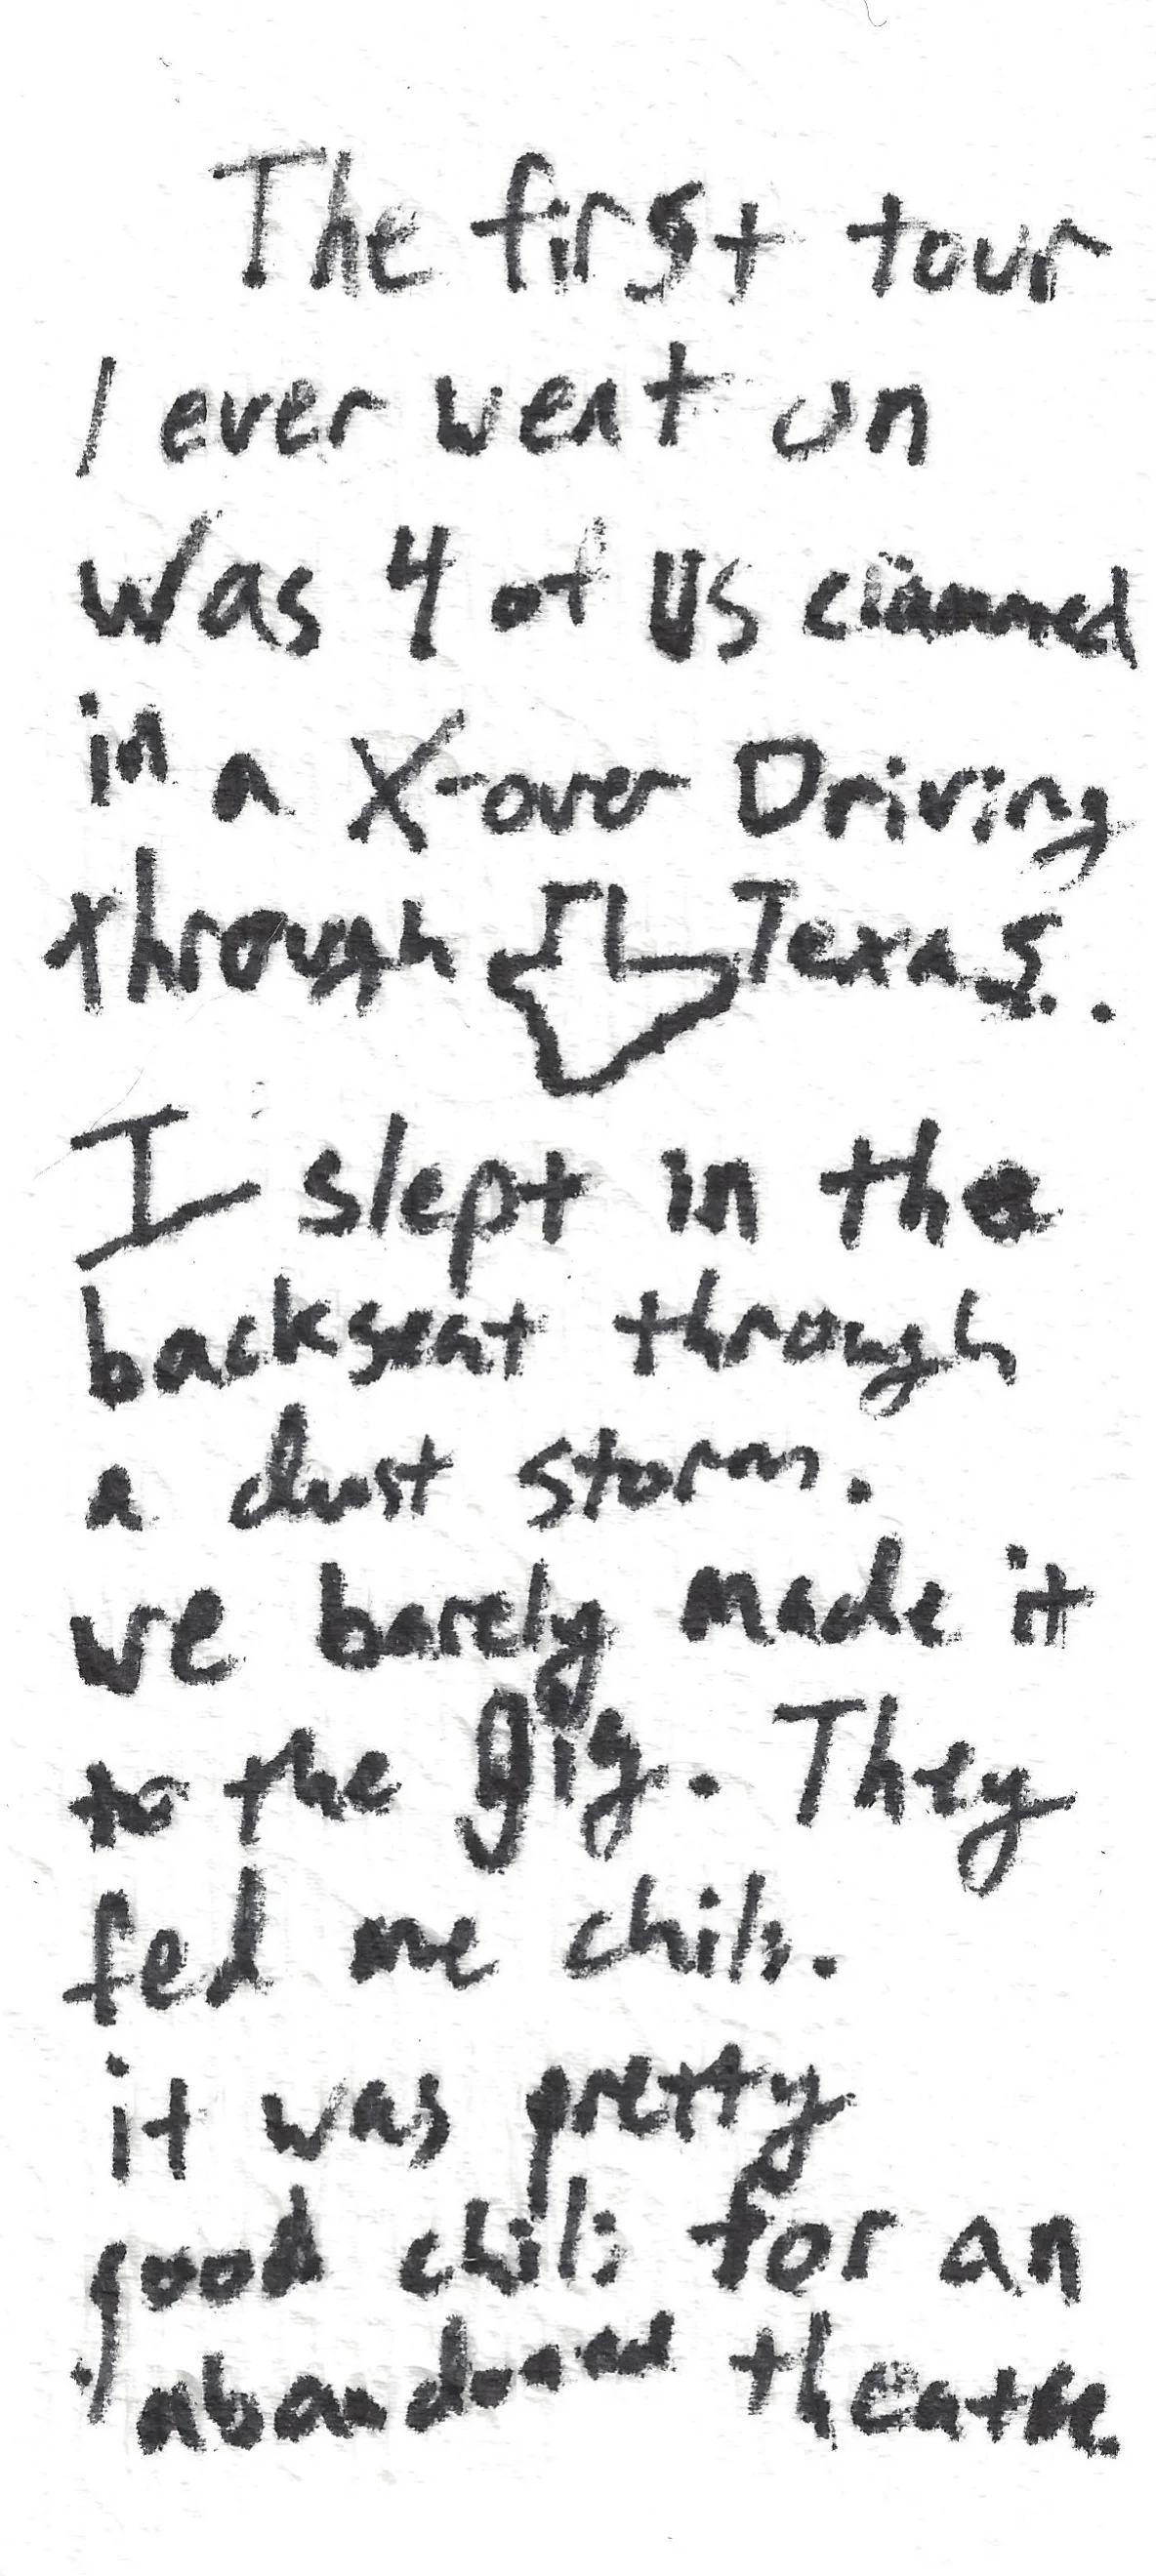 The first tour
I ever went on
was 4 of us crammed
in a X-over Driving
through Texas.
I slept in the
backseat through
a dust storm.
we barely made it
to the gig. They
fed me chili.
it was pretty
good chili for an
abandoned theatre.